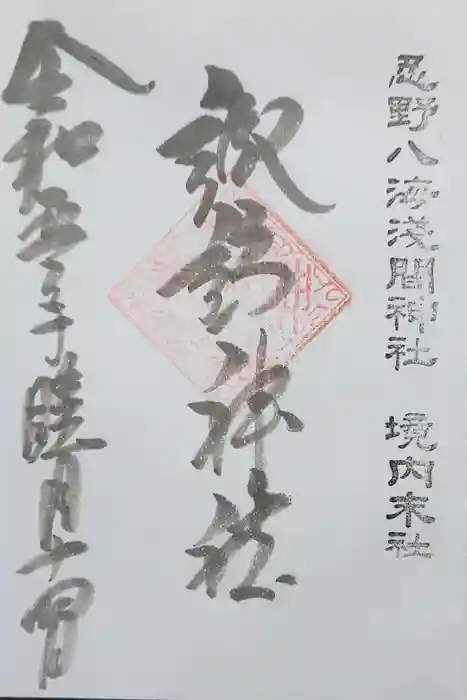 忍野八海淺間神社　境内末社
神社
令和五年睦月十四日